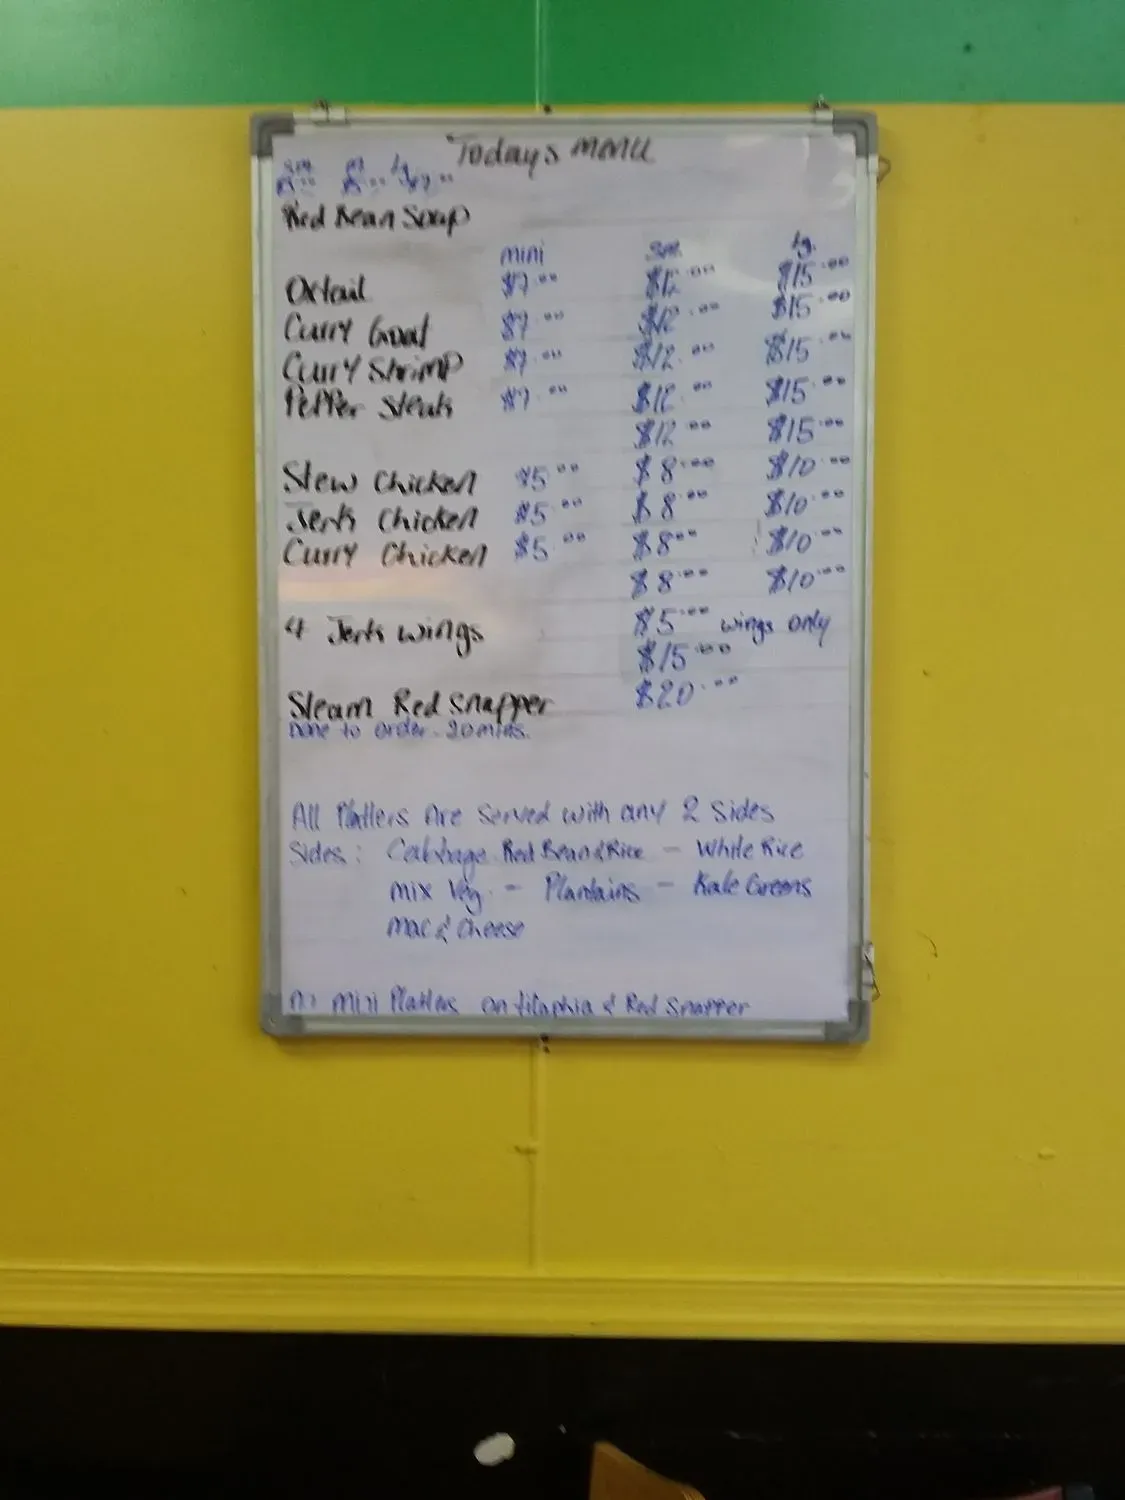 Todays MENU
sm. m lg.
Red Bean Soup
mini sm. lg.
Oxtail $7.00 $12.00 $15.00
Curry Goat $7.00 $12.00 $15.00
Curry Shrimp $7.00 $12.00 $15.00
Pepper Steak $7.00 $12.00 $15.00
$12.00 $15.00
Stew Chicken $5.00 $8.00 $10.00
Jerk Chicken $5.00 $8.00 $10.00
Curry Chicken $5.00 $8.00 $10.00
$8.00 $10.00
4 Jerk wings $5.00 wings only
$15.00
Steam Red Snapper $20.00
Done to order - 20 mins.
All Platters Are Served with any 2 Sides
Sides: Cabbage Red Bean & Rice - White Rice
mix Veg. - Plantains - Kale Greens
Mac & Cheese
no mini Platters on tilaphia & Red Snapper